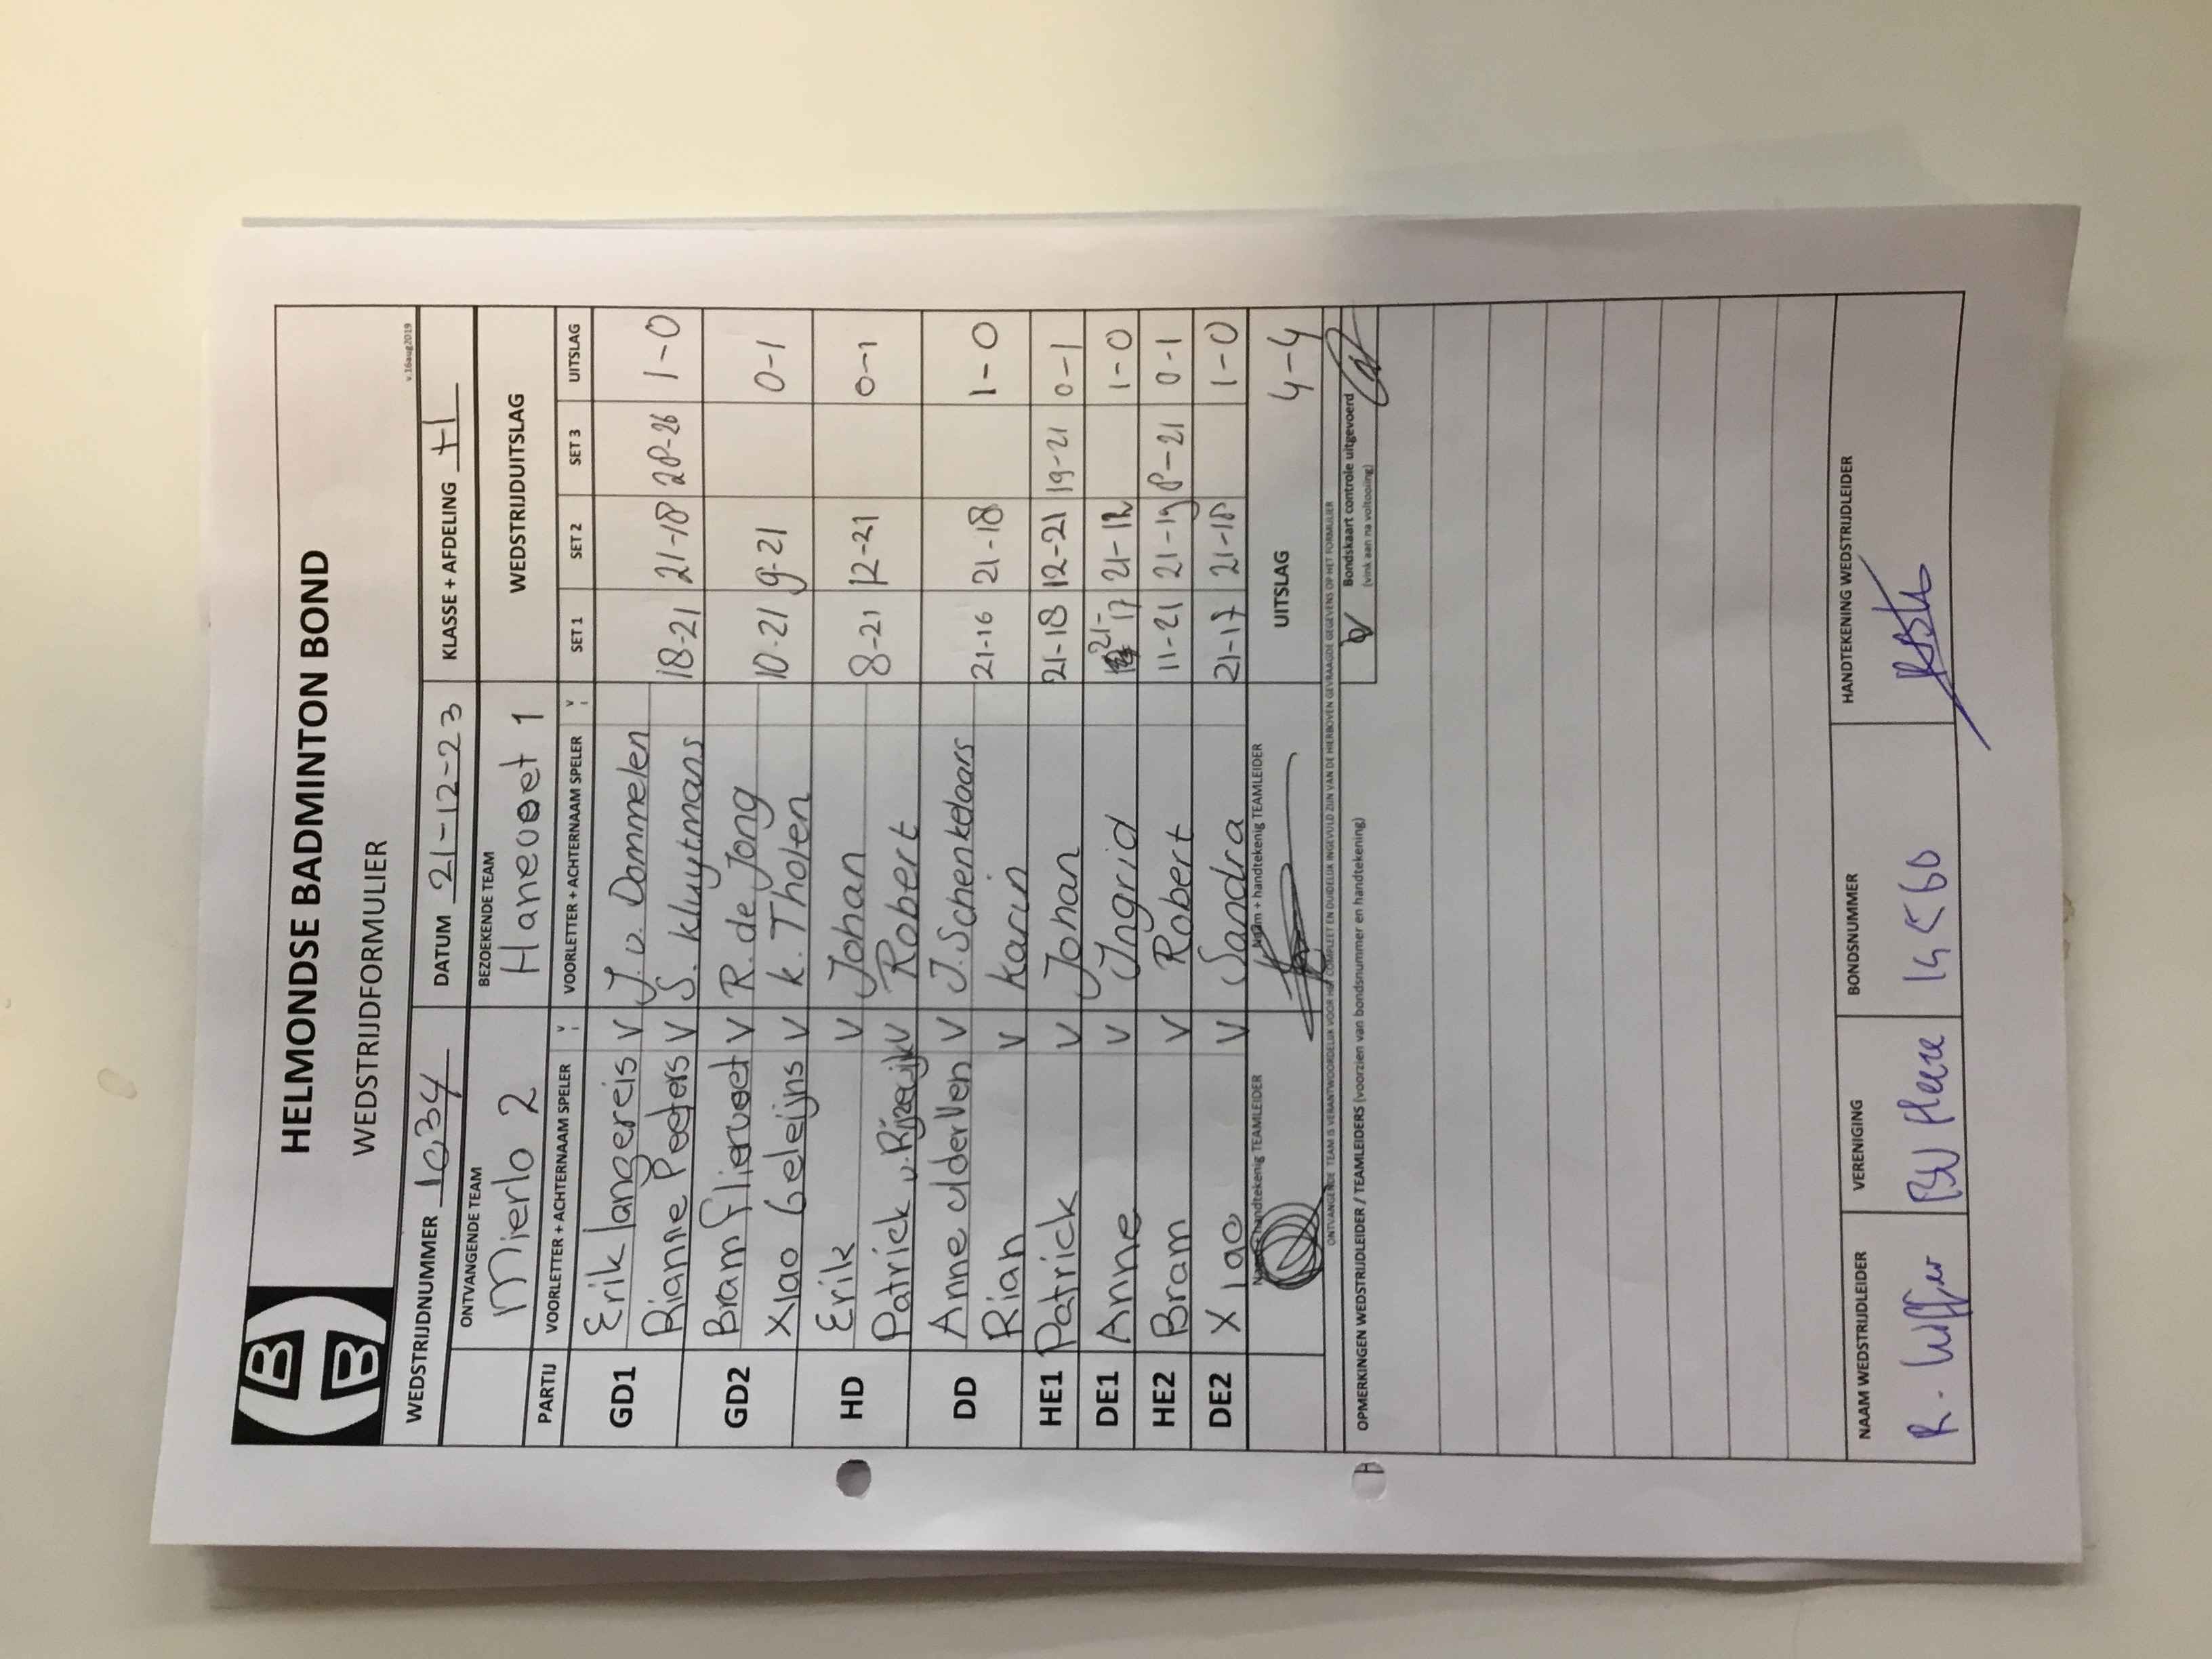 HELMONDSE BADMINTON BOND
WEDSTRIJDFORMULIER
v.16aug2019
WEDSTRIJDNUMMER 1034 DATUM 21-12-23 KLASSE + AFDELING H
ONTVANGENDE TEAM BEZOEKENDE TEAM WEDSTRIJDUITSLAG
Mierlo 2 Hanevoet 1
PARTIJ VOORLETTER + ACHTERNAAM SPELER V VOORLETTER + ACHTERNAAM SPELER V SET 1 SET 2 SET 3 UITSLAG
GD1 Erik langereis V J. v. Dommelen
Rianne Peeters V S. kluytmans 18-21 21-18 28-26 1-0
GD2 Bram Flievoet V R. de Jong
Xiao Geleijns V k. Tholen 10-21 9-21 0-1
HD Erik V Johan
Patrick v. Rijzewijk V Robert 8-21 12-21 0-1
DD Anne V J. Schenkelaars
Rian V Karin 21-16 21-18 1-0
HE1 Patrick V Johan 21-18 12-21 19-21 0-1
DE1 Anne V Ingrid 21-17 21-12 1-0
HE2 Bram V Robert 11-21 21-19 8-21 0-1
DE2 Xiao V Sandra 21-17 21-18 1-0
Naam + handtekenig TEAMLEIDER Naam + handtekenig TEAMLEIDER UITSLAG 4-4
ONTVANGENDE TEAM IS VERANTWOORDELIJK VOOR HET COMPLEET EN DUIDELIJK INGEVULD ZIJN VAN DE HIERBOVEN GEVRAAGDE GEGEVENS OP HET FORMULIER
OPMERKINGEN WEDSTRIJDLEIDER / TEAMLEIDERS (voorzien van bondsnummer en handtekening) V Bondskaart controle uitgevoerd
(vink aan na voltooiing)
NAAM WEDSTRIJDLEIDER VERENIGING BONDSNUMMER HANDTEKENING WEDSTRIJDLEIDER
R.